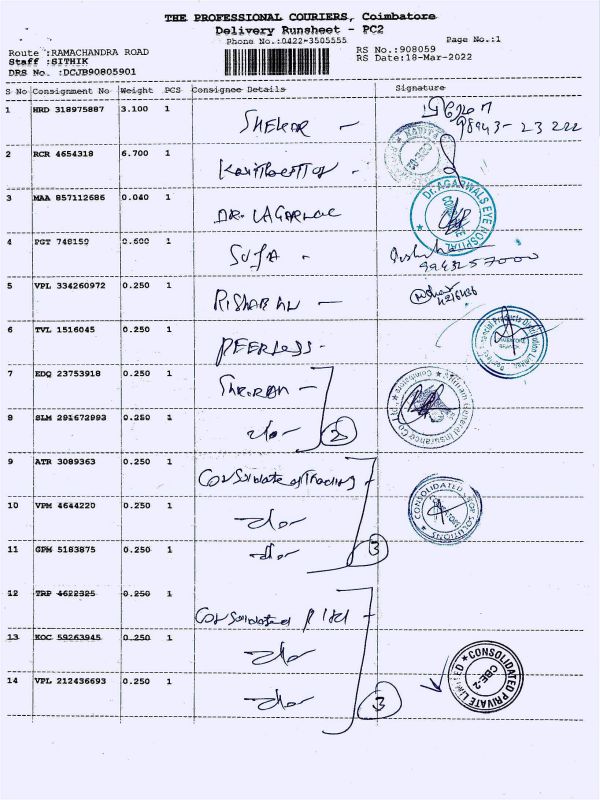 THE PROFESSIONAL COURIERS, Coimbatore
Delivery Runsheet - PC2
Phone No.:0422-3505555
Page No.:1
Route :RAMACHANDRA ROAD
RS No.:908059
Staff :SITHIK
RS Date:18-Mar-2022
DRS No. :DCJB90805901
S No Consignment No Weight PCS Consignee Details Signature
1 HRD 318975887 3.100 1 SHEKAR -
98943-23222
2 RCR 4654318 6.700 1
3 MAA 857112686 0.040 1 DR. LAGARWAL
Dr. AGARWALS EYE HOSPITAL
4 PGT 748159 0.600 1 SUJA -
9943257000
5 VPL 334260972 0.250 1 RISHABAH -
6 TVL 1516045 0.250 1 PEERLESS -
7 EDQ 23753918 0.250 1 SHRIRAM -
Shriram General Insurance Co
Coimbatore
8 SLM 291672993 0.250 1 do 2
9 ATR 3089363 0.250 1 Consolidated Trading
10 VPM 4644220 0.250 1 do
CONSOLIDATED SOLUTIONS
11 GPM 5183875 0.250 1 do 3
12 TRP 4622325 0.250 1 Consolidated P Ltd -
13 KOC 59263945 0.250 1 do
14 VPL 212436693 0.250 1 do 3
CONSOLIDATED PRIVATE LIMITED
CBE-2